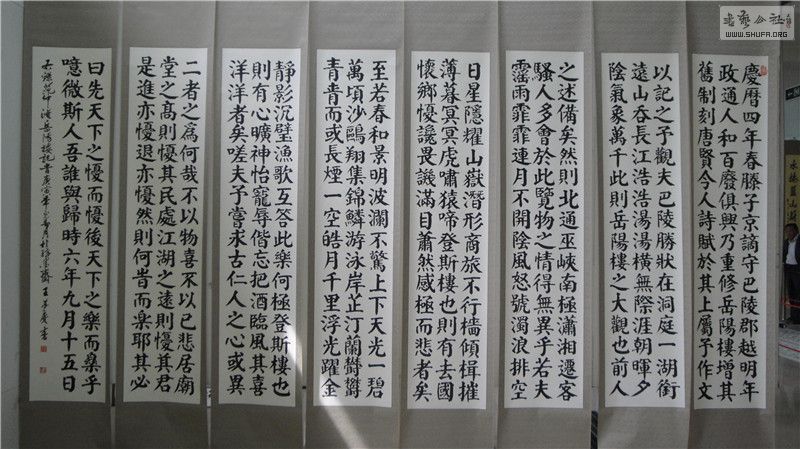 慶曆四年春滕子京謫守巴陵郡越明年
政通人和百廢俱興乃重修岳陽樓增其
舊制刻唐賢今人詩賦於其上屬予作文
以記之予觀夫巴陵勝狀在洞庭一湖銜
遠山吞長江浩浩湯湯橫無際涯朝暉夕
陰氣象萬千此則岳陽樓之大觀也前人
之述備矣然則北通巫峽南極瀟湘遷客
騷人多會於此覽物之情得無異乎若夫
霪雨霏霏連月不開陰風怒號濁浪排空
日星隱耀山嶽潛形商旅不行檣傾楫摧
薄暮冥冥虎嘯猿啼登斯樓也則有去國
懷鄉憂讒畏譏滿目蕭然感極而悲者矣
至若春和景明波瀾不驚上下天光一碧
萬頃沙鷗翔集錦鱗游泳岸芷汀蘭鬱鬱
青青而或長煙一空皓月千里浮光躍金
靜影沉璧漁歌互答此樂何極登斯樓也
則有心曠神怡寵辱偕忘把酒臨風其喜
洋洋者矣嗟夫予嘗求古仁人之心或異
二者之為何哉不以物喜不以己悲居廟
堂之高則憂其民處江湖之遠則憂其君
是進亦憂退亦憂然則何旹而樂耶其必
曰先天下之憂而憂後天下之樂而樂乎
噫微斯人吾誰與歸時六年九月十五日
右錄范仲淹岳陽樓記
書藝公社
WWW.SHUFA.ORG